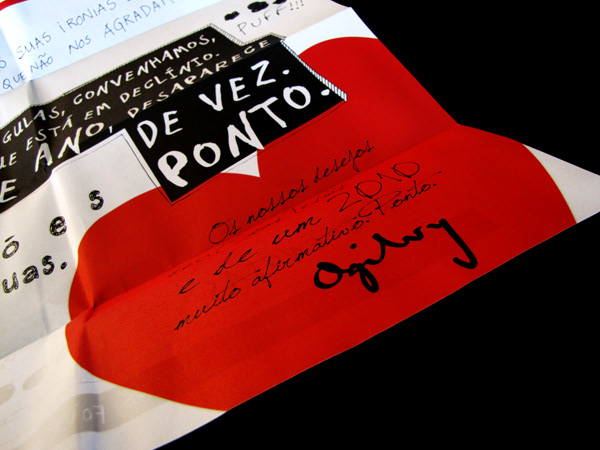 S SUAS IRONIAS
QUE NÃO NOS AGRADA
PUFF!!!
GULAS, CONVENHAMOS,
UE ESTÁ EM DECLÍNIO.
E ANO, DESAPARECE
DE VEZ.
PONTO.
õ e s
uas.
Os nossos desejos
é de um 2010
muito afirmativo. Ponto.
Ogilvy